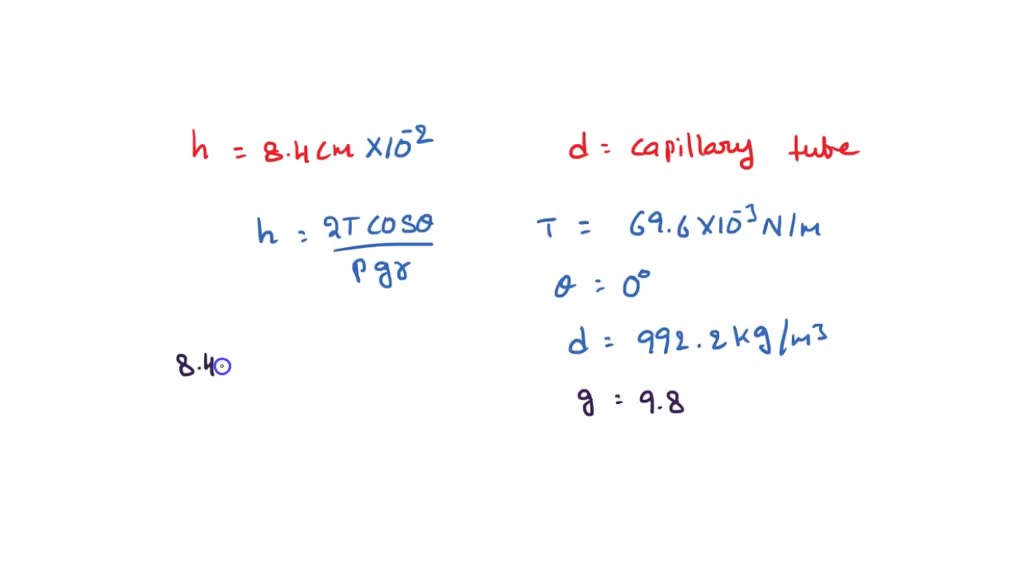 h = 8.4 cm ×10⁻²
d = capillary tube
h = 2T cosθ / ρgr
T = 69.6 ×10⁻³ N/m
θ = 0°
d = 992.2 kg/m³
8.40
g = 9.8